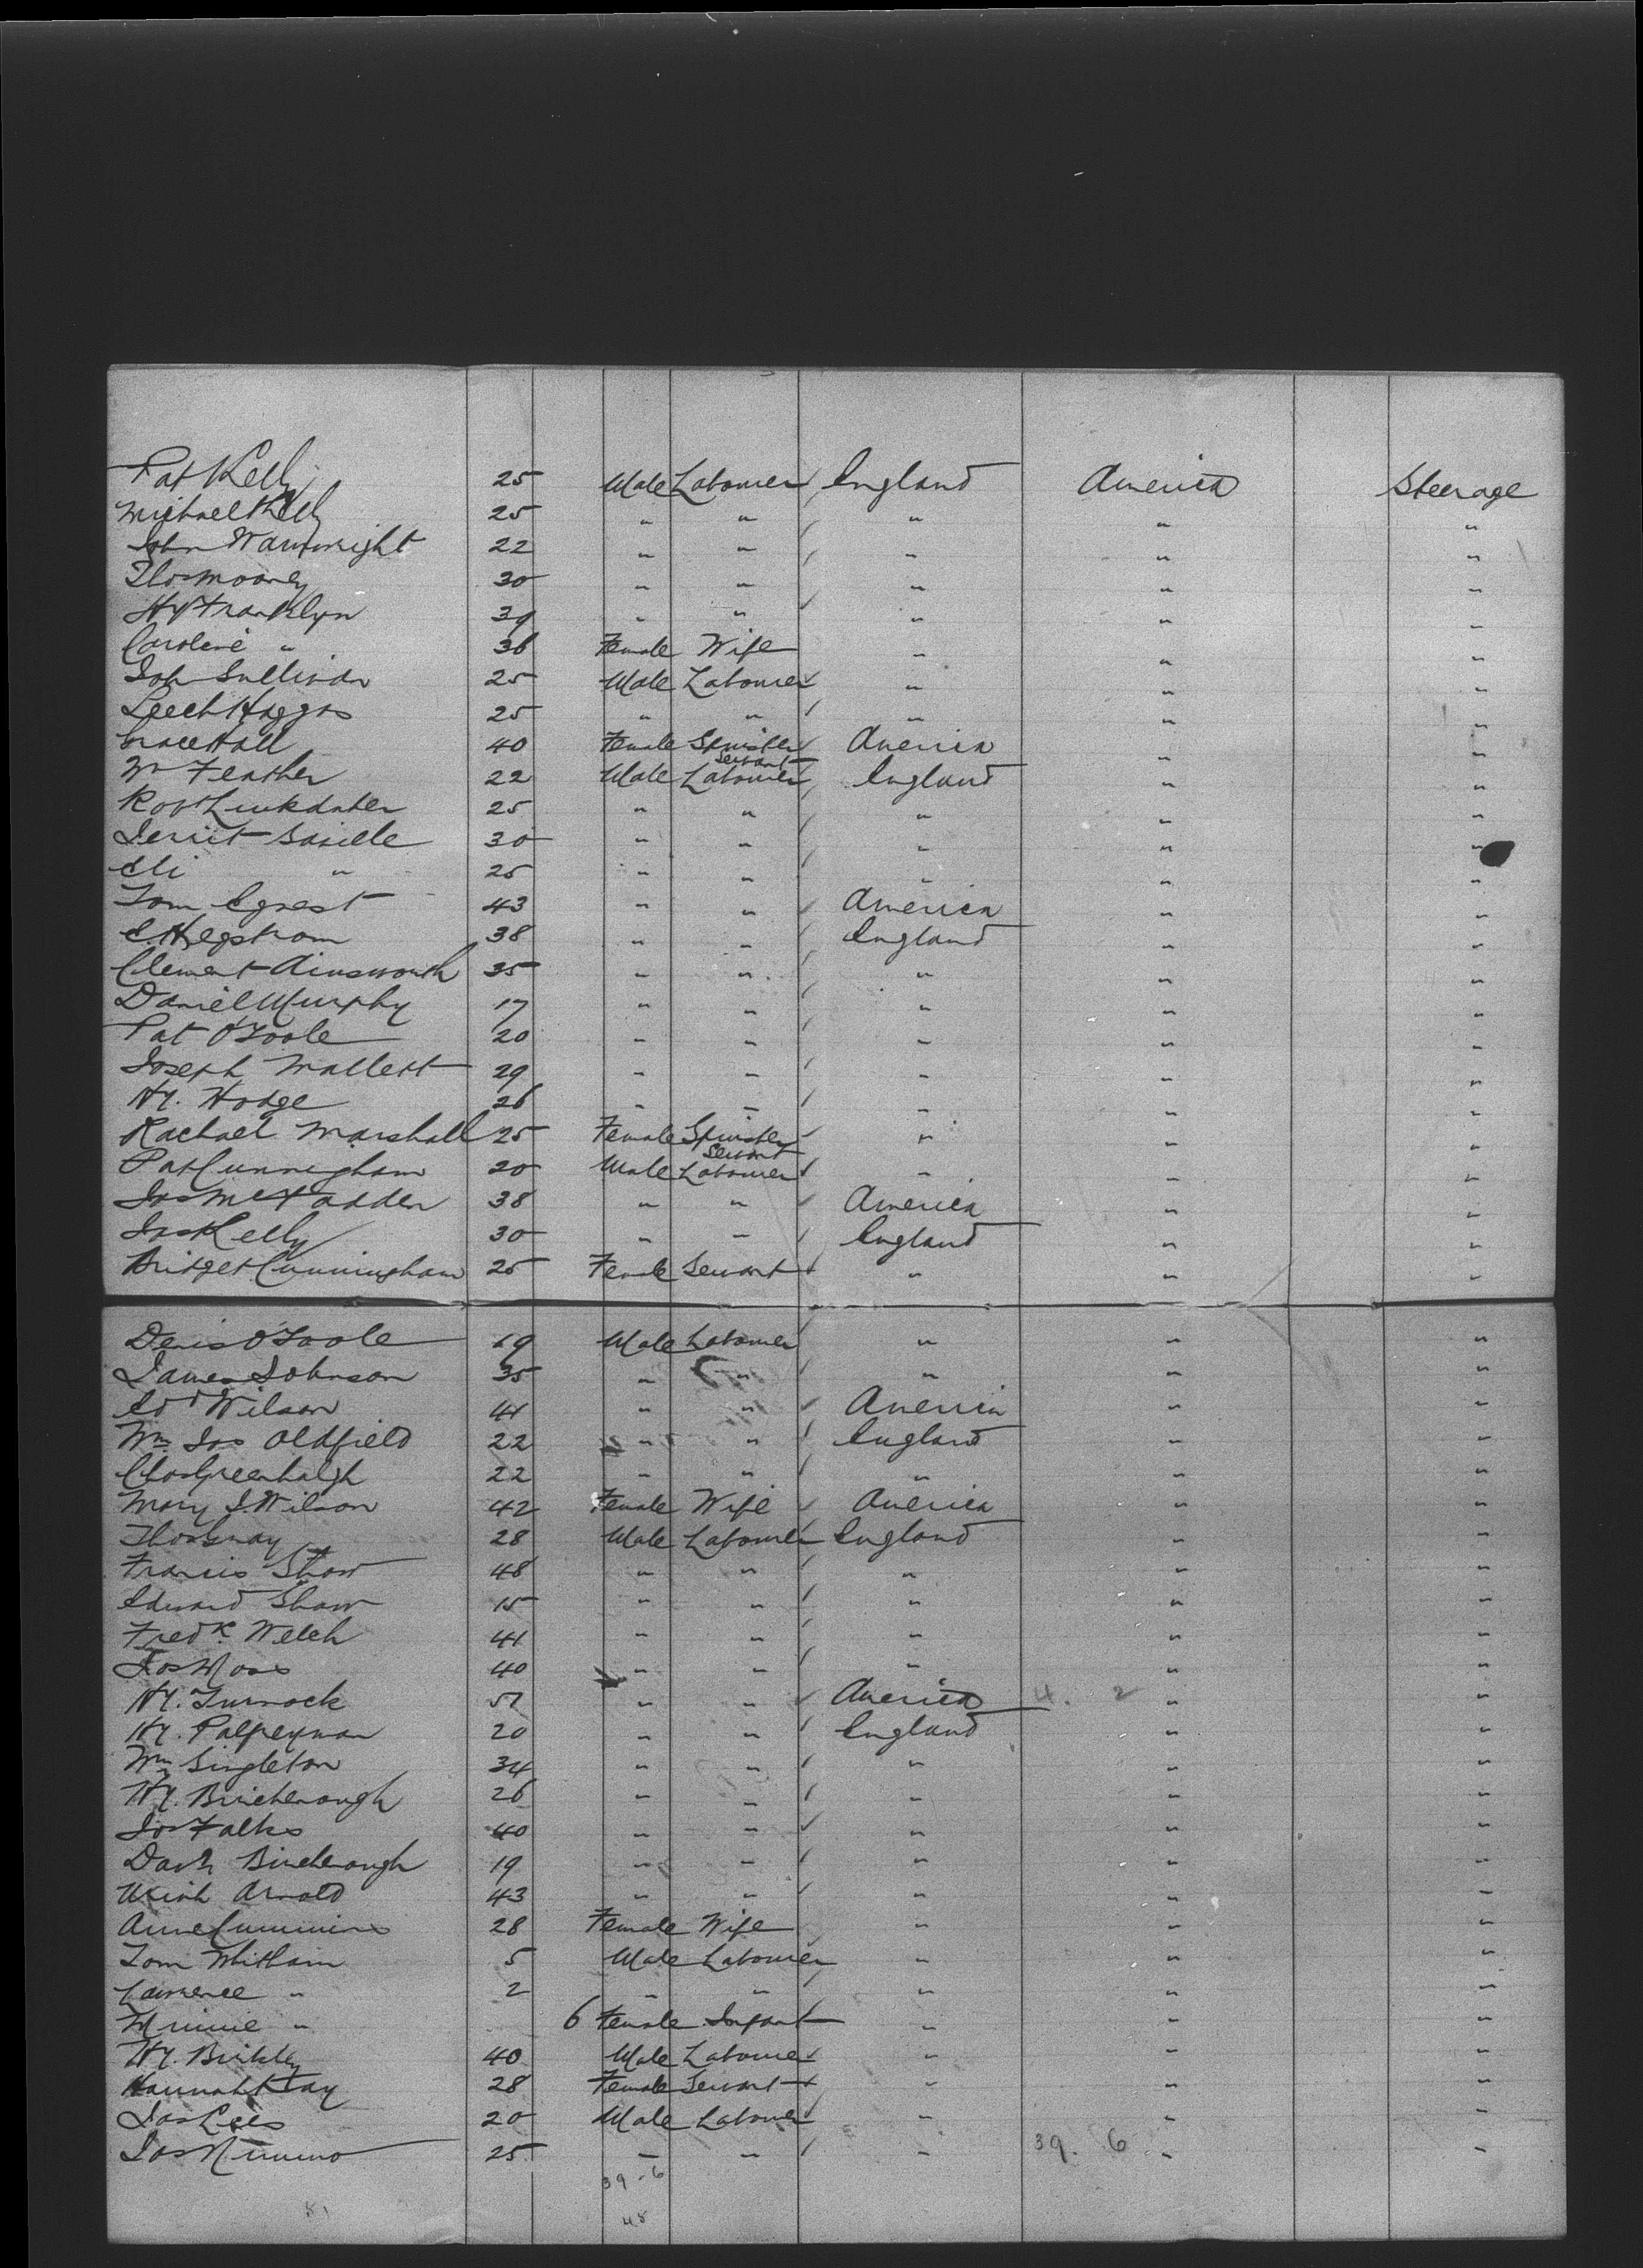 Pat Kelly 25 Male Labourer England America Steerage
Michael Kelly 25 " " " " "
John Wainwright 22 " " " " "
Thos Mooney 30 " " " " "
Hy Franklyn 39 " " " " "
Caroline " 36 Female Wife " " "
Joh Sullivan 25 Male Labourer " " "
Leech Haggas 25 " " " " "
Grace Hall 40 Female Spinster America " "
Servant
Wm Feather 22 Male Labourer England " "
Robt 25 " " " " "
Saville 30 " " " " "
Eli " 25 " " " " "
Tom 43 " " America " "
C. Hegstrom 38 " " England " "
Clement Ainsworth 35 " " " " "
Daniel Murphy 17 " " " " "
Pat O'Toole 20 " " " " "
Joseph Mallett 29 " " " " "
Hy. Hodge 26 " " " " "
Rachael Marshall 25 Female Spinster " " "
Servant
Pat Cunningham 20 Male Labourer " " "
Jas McFadden 38 " " America " "
Jas Kelly 30 " " England " "
Bridget Cunningham 25 Female Servant " " "
Denis O'Toole 19 Male Labourer " " "
James Johnson 35 " " " " "
Ed Wilson 41 " " America " "
Wm Jas Oldfield 22 " " England " "
Chas Greenhalgh 22 " " " " "
Mary J. Wilson 42 Female Wife America " "
Thos Gray 28 Male Labourer England " "
Francis Shaw 48 " " " " "
Edward Shaw 15 " " " " "
Fredk. Welch 41 " " " " "
Jos Moss 40 " " " " "
Hy. Turnock 51 " " America 4. 2 " "
Hy. Palfreyman 20 " " England " "
Wm Singleton 34 " " " " "
Hy. Birchenough 26 " " " " "
Jos Falks 40 " " " " "
Birchenough 19 " " " " "
Uriah Arnold 43 " " " " "
Anne Cummins 28 Female Wife " " "
Tom Whitham 5 Male Labourer " " "
Lawrence " 2 " " " " "
Minnie " 6 Female Infant " " "
Hy. Binkley 40 Male Labourer " " "
Hannah Kay 28 Female Servant " " "
Jas Lees 20 Male Labourer " " "
Jas Nimmo 25 " " " 39. 6 " "
39-6
48